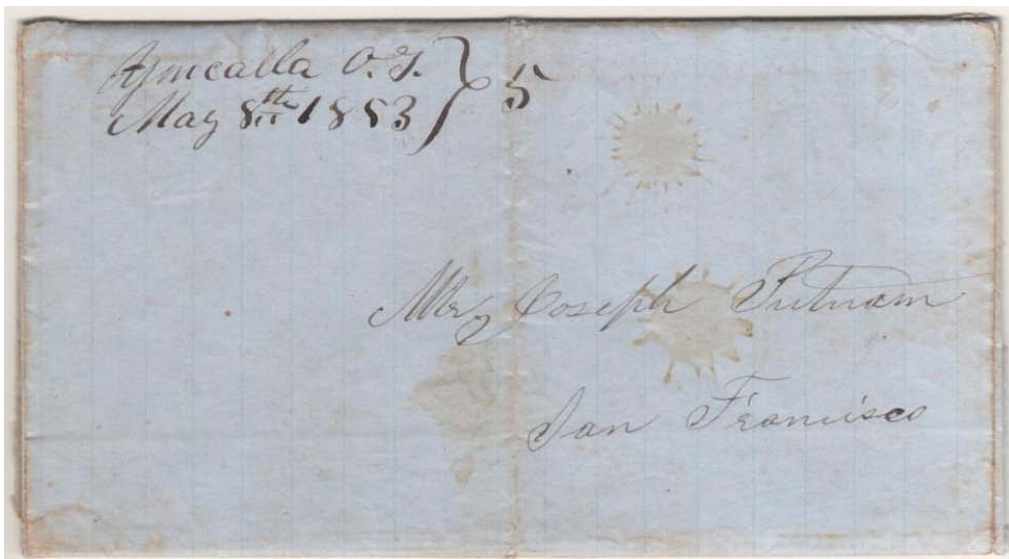 Yoncalla O.T.
May 8th 1853 } 5
Mr, Joseph Putnam
San Francisco